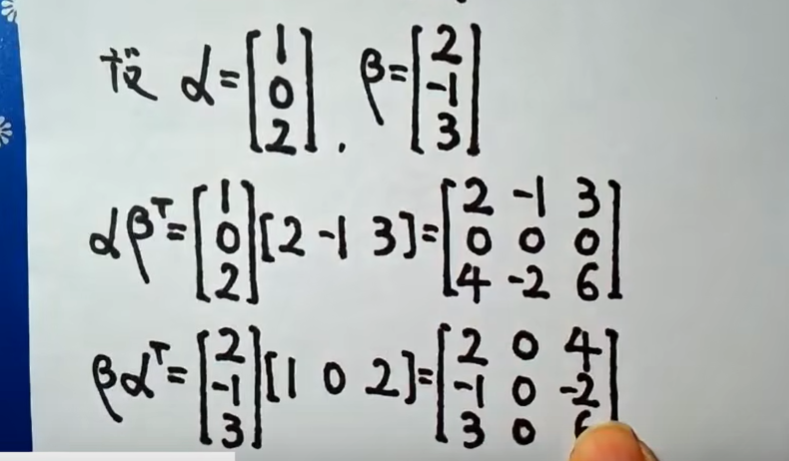 设 α = [1 0 2]. β = [2 -1 3]
αβᵀ = [1 0 2] [2 -1 3] = [2 -1 3 0 0 0 4 -2 6]
βαᵀ = [2 -1 3] [1 0 2] = [2 0 4 -1 0 -2 3 0]